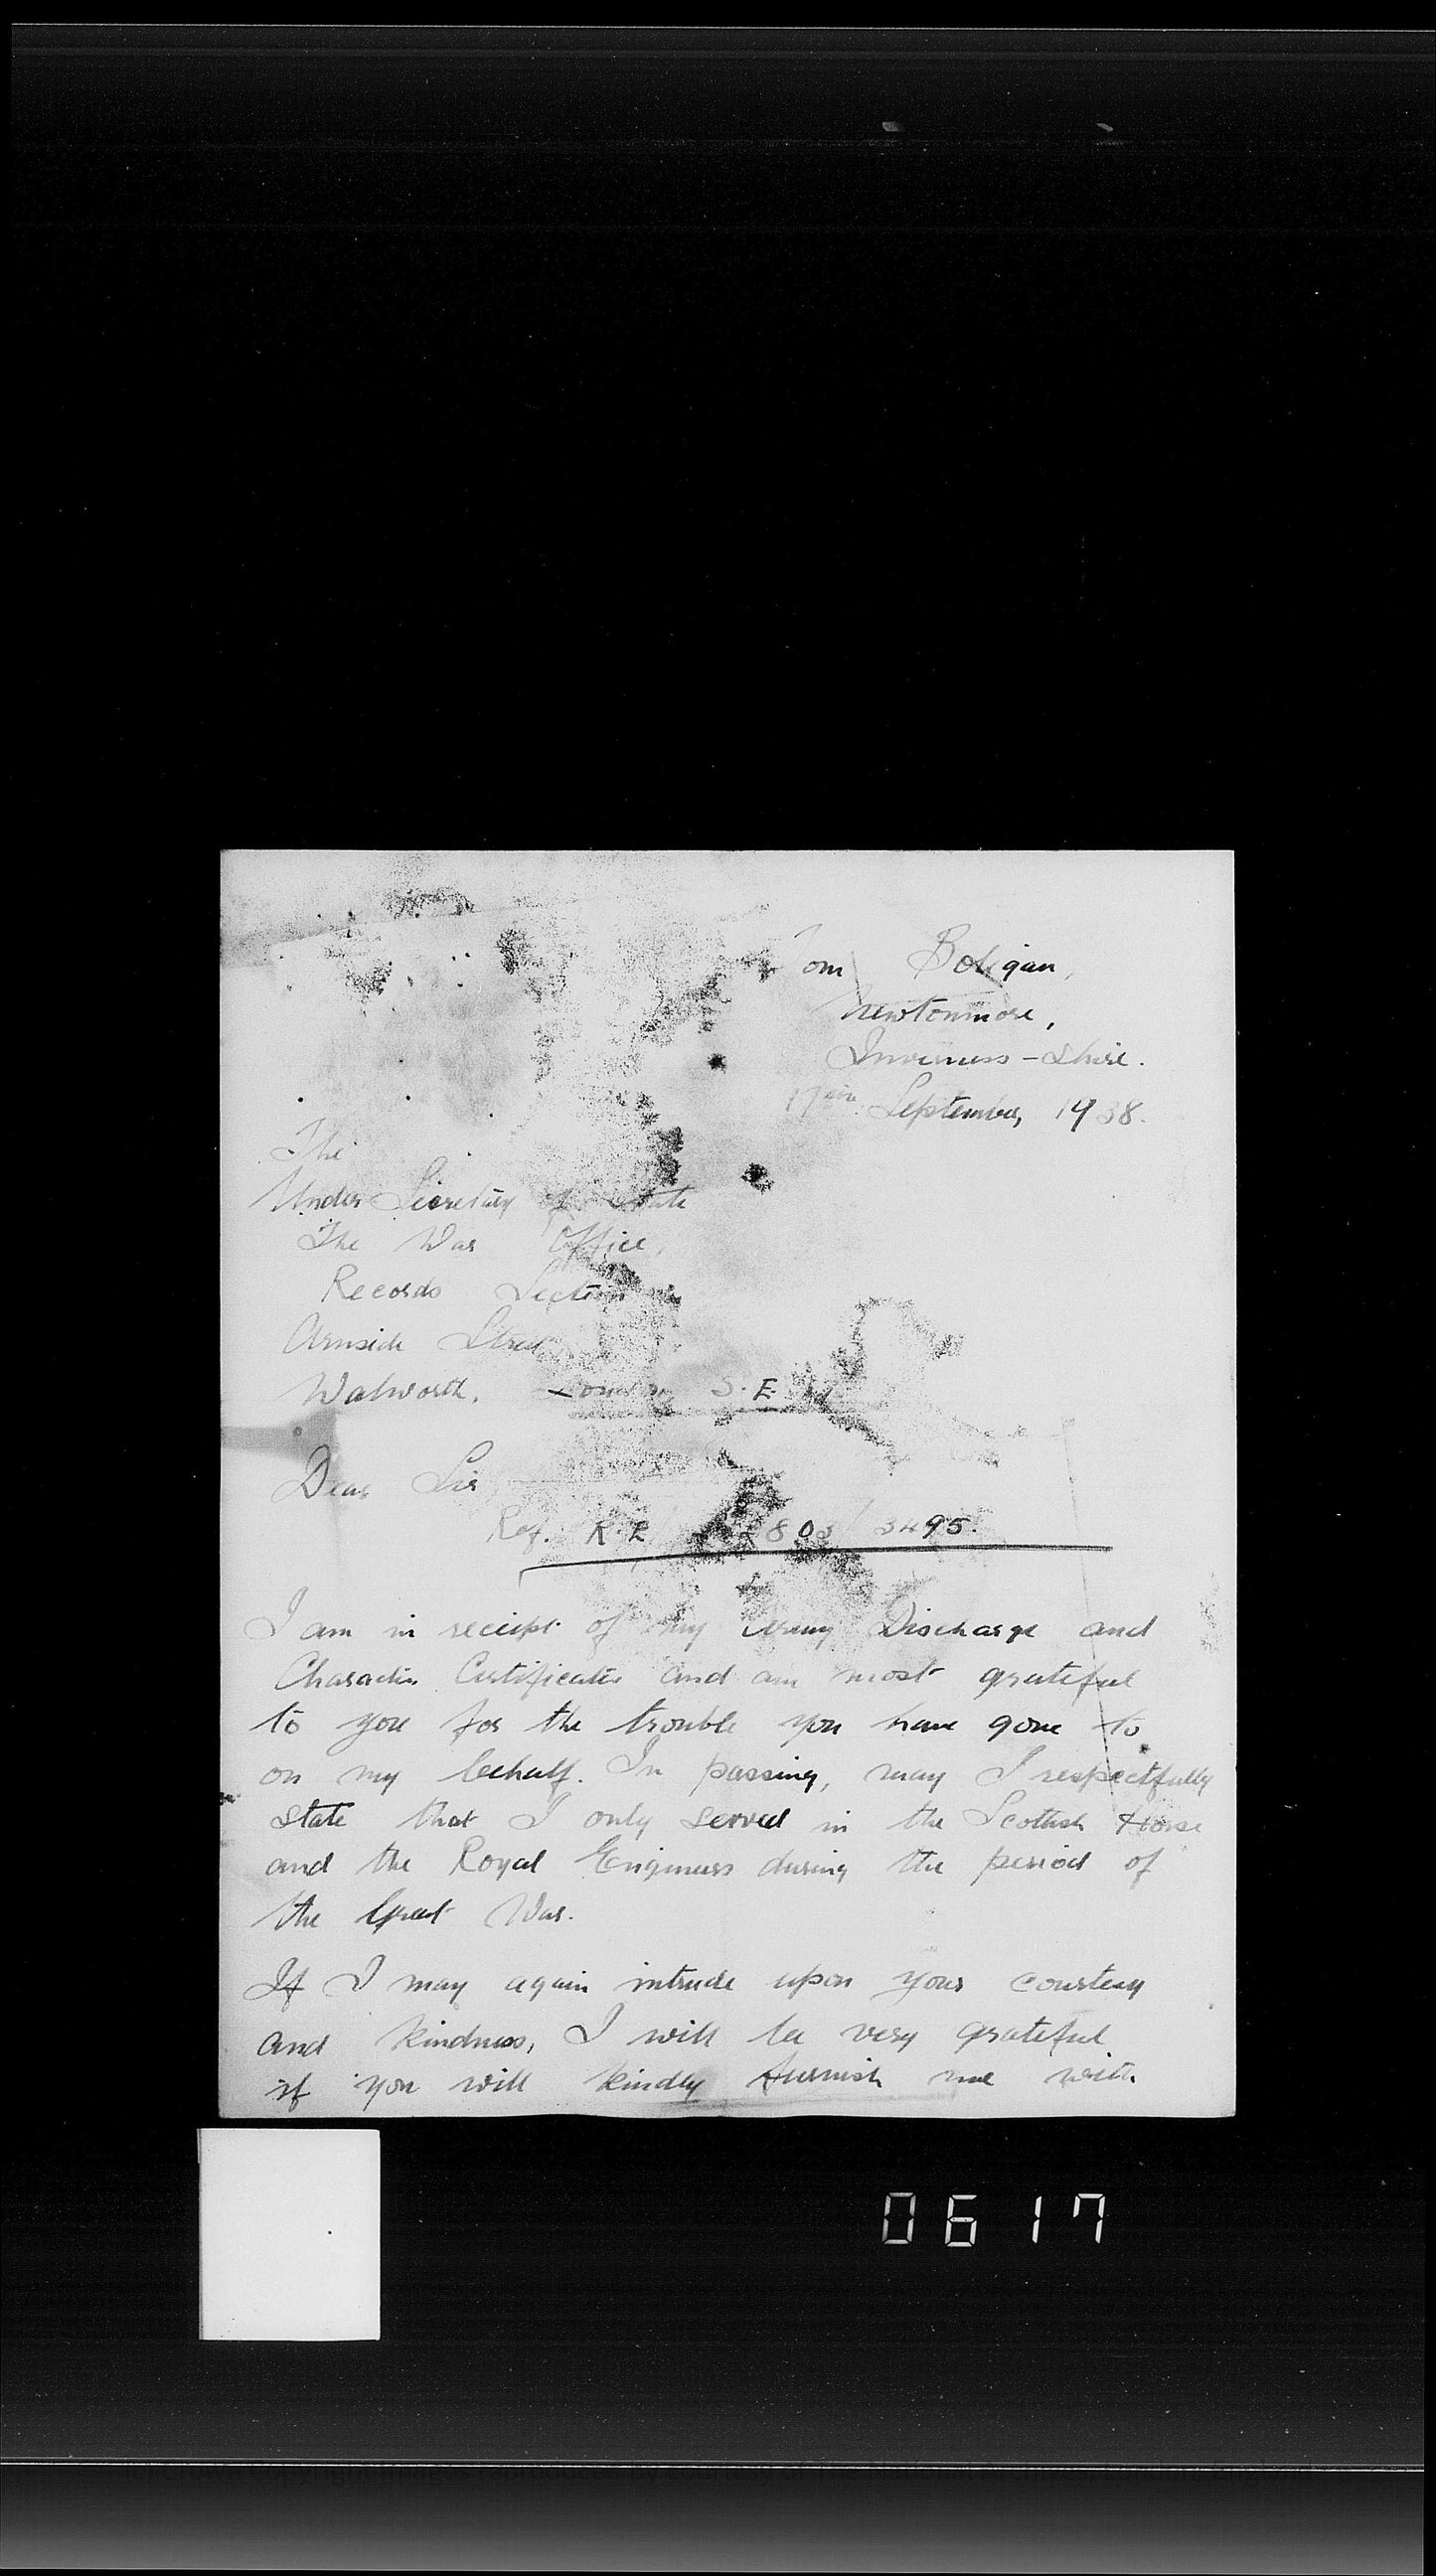 Tom Boligan,
Newtonmore,
Inverness-Shire.
17th September, 1938.
The
Under Secretary of State
The War Office,
Records Section
Arnside Street
Walworth. London S.E.
Dear Sir
Ref. R.E 803/3495.
I am in receipt of my Army Discharge and
Character Certificates and am most grateful
to you for the trouble you have gone to
on my behalf. In passing, may I respectfully
state that I only served in the Scottish Horse
and the Royal Engineers during the period of
the Great War.
If I may again intrude upon your courtesy
and kindness, I will be very grateful
if you will kindly furnish me with
0617